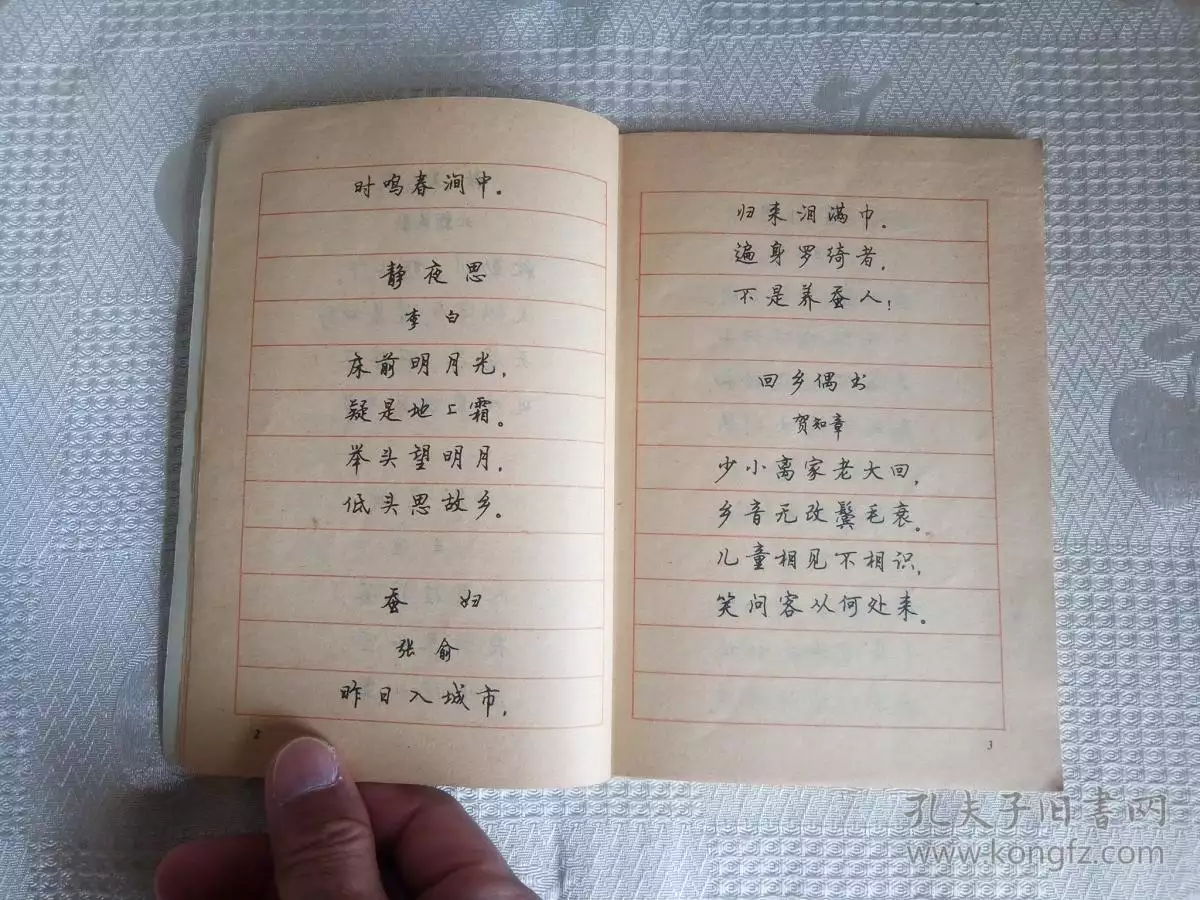 时鸣春涧中。
静夜思
李白
床前明月光，
疑是地上霜。
举头望明月，
低头思故乡。
蚕 妇
张俞
昨日入城市，
2
归来泪满巾。
遍身罗绮者，
不是养蚕人！
回乡偶书
贺知章
少小离家老大回，
乡音无改鬓毛衰。
儿童相见不相识，
笑问客从何处来。
3
孔夫子旧书网
www.kongfz.com